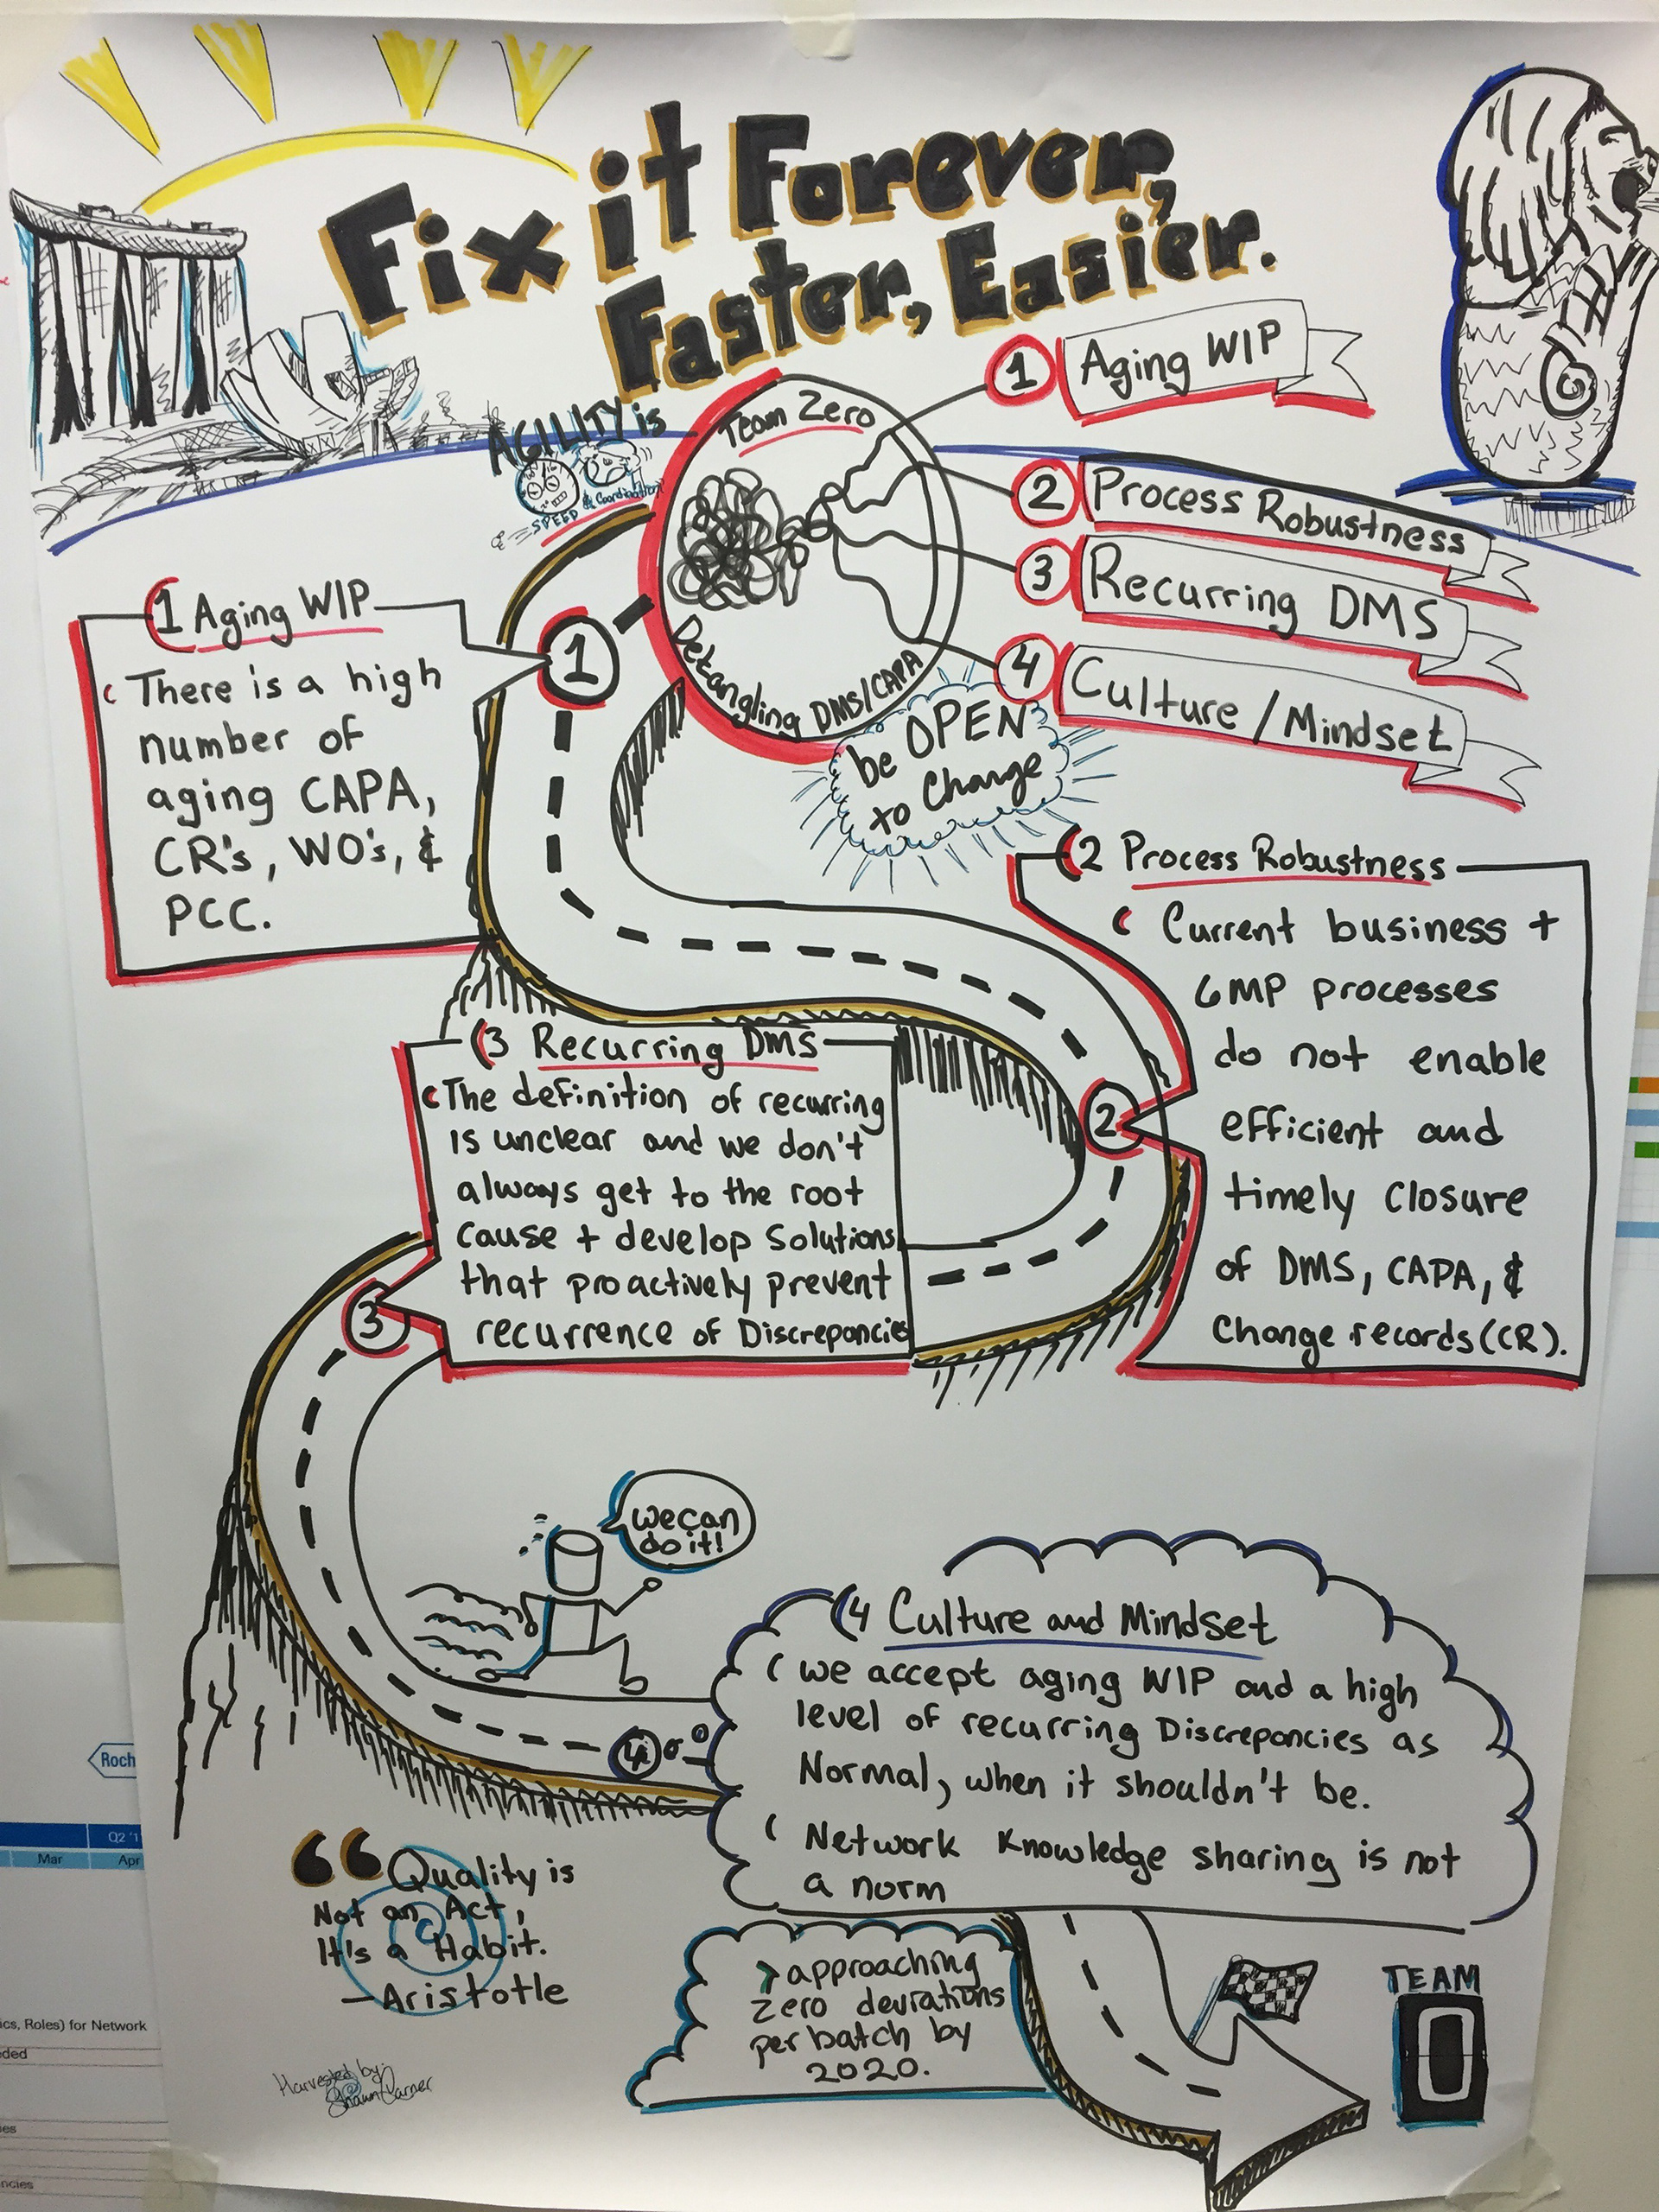 Fix it Forever,
Faster, Easier.
AGILITY is
SPEED & Coordination
Team Zero
Detangling DMS/CAPA
1 Aging WIP
2 Process Robustness
3 Recurring DMS
4 Culture / Mindset
be OPEN
to Change
1 Aging WIP
There is a high
number of
aging CAPA,
CR's, WO's, &
PCC.
1
2 Process Robustness
Current business +
GMP processes
do not enable
efficient and
timely closure
of DMS, CAPA, &
Change records (CR).
2
3 Recurring DMS
The definition of recurring
is unclear and we don't
always get to the root
cause + develop Solutions
that proactively prevent
recurrence of Discrepancies
3
we can
do it!
4 Culture and Mindset
we accept aging WIP and a high
level of recurring Discrepancies as
Normal, when it shouldn't be.
Network Knowledge sharing is not
a norm
4
Roch
Q2 '1
Mar Apr
ics, Roles) for Network
ded
es
ncies
“ Quality is
Not an Act,
It's a Habit.
— Aristotle
> approaching
zero deviations
per batch by
2020.
TEAM
0
Harvested by:
Shawn